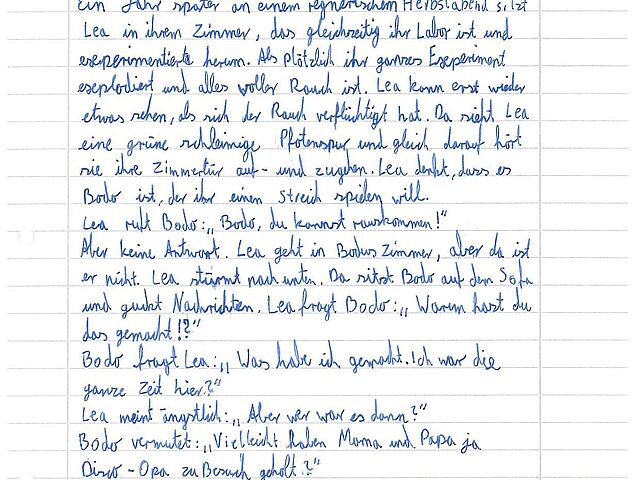 Ein Jahr später an einem regnerischem Herbstabend sitzt
Lea in ihrem Zimmer, das gleichzeitig ihr Labor ist und
exeperimentierte herum. Als Plötzlich ihr ganzes Exeperiment
exeplodiert und alles voller Rauch ist. Lea kann erst wieder
etwas sehen, als sich der Rauch verflüchtigt hat. Da sieht Lea
eine grüne schleimige Pfotenspur und gleich darauf hört
sie ihre Zimmertür auf- und zugehen. Lea denkt, dass es
Bodo ist, der ihr einen Streich spielen will.
Lea ruft Bodo: „Bodo, du kannst rauskommen!"
Aber keine Antwort. Lea geht in Bodos Zimmer, aber da ist
er nicht. Lea stürmt nach unten. Da sitzt Bodo auf dem Sofa
und guckt Nachrichten. Lea fragt Bodo: „Warum hast du
das gemacht!?"
Bodo fragt Lea: „Was habe ich gemacht. Ich war die
ganze Zeit hier?"
Lea meint ängstlich: „Aber wer war es dann?"
Bodo vermutet: „Vielleicht haben Mama und Papa ja
Disco-Opa zu Besuch geholt!?"